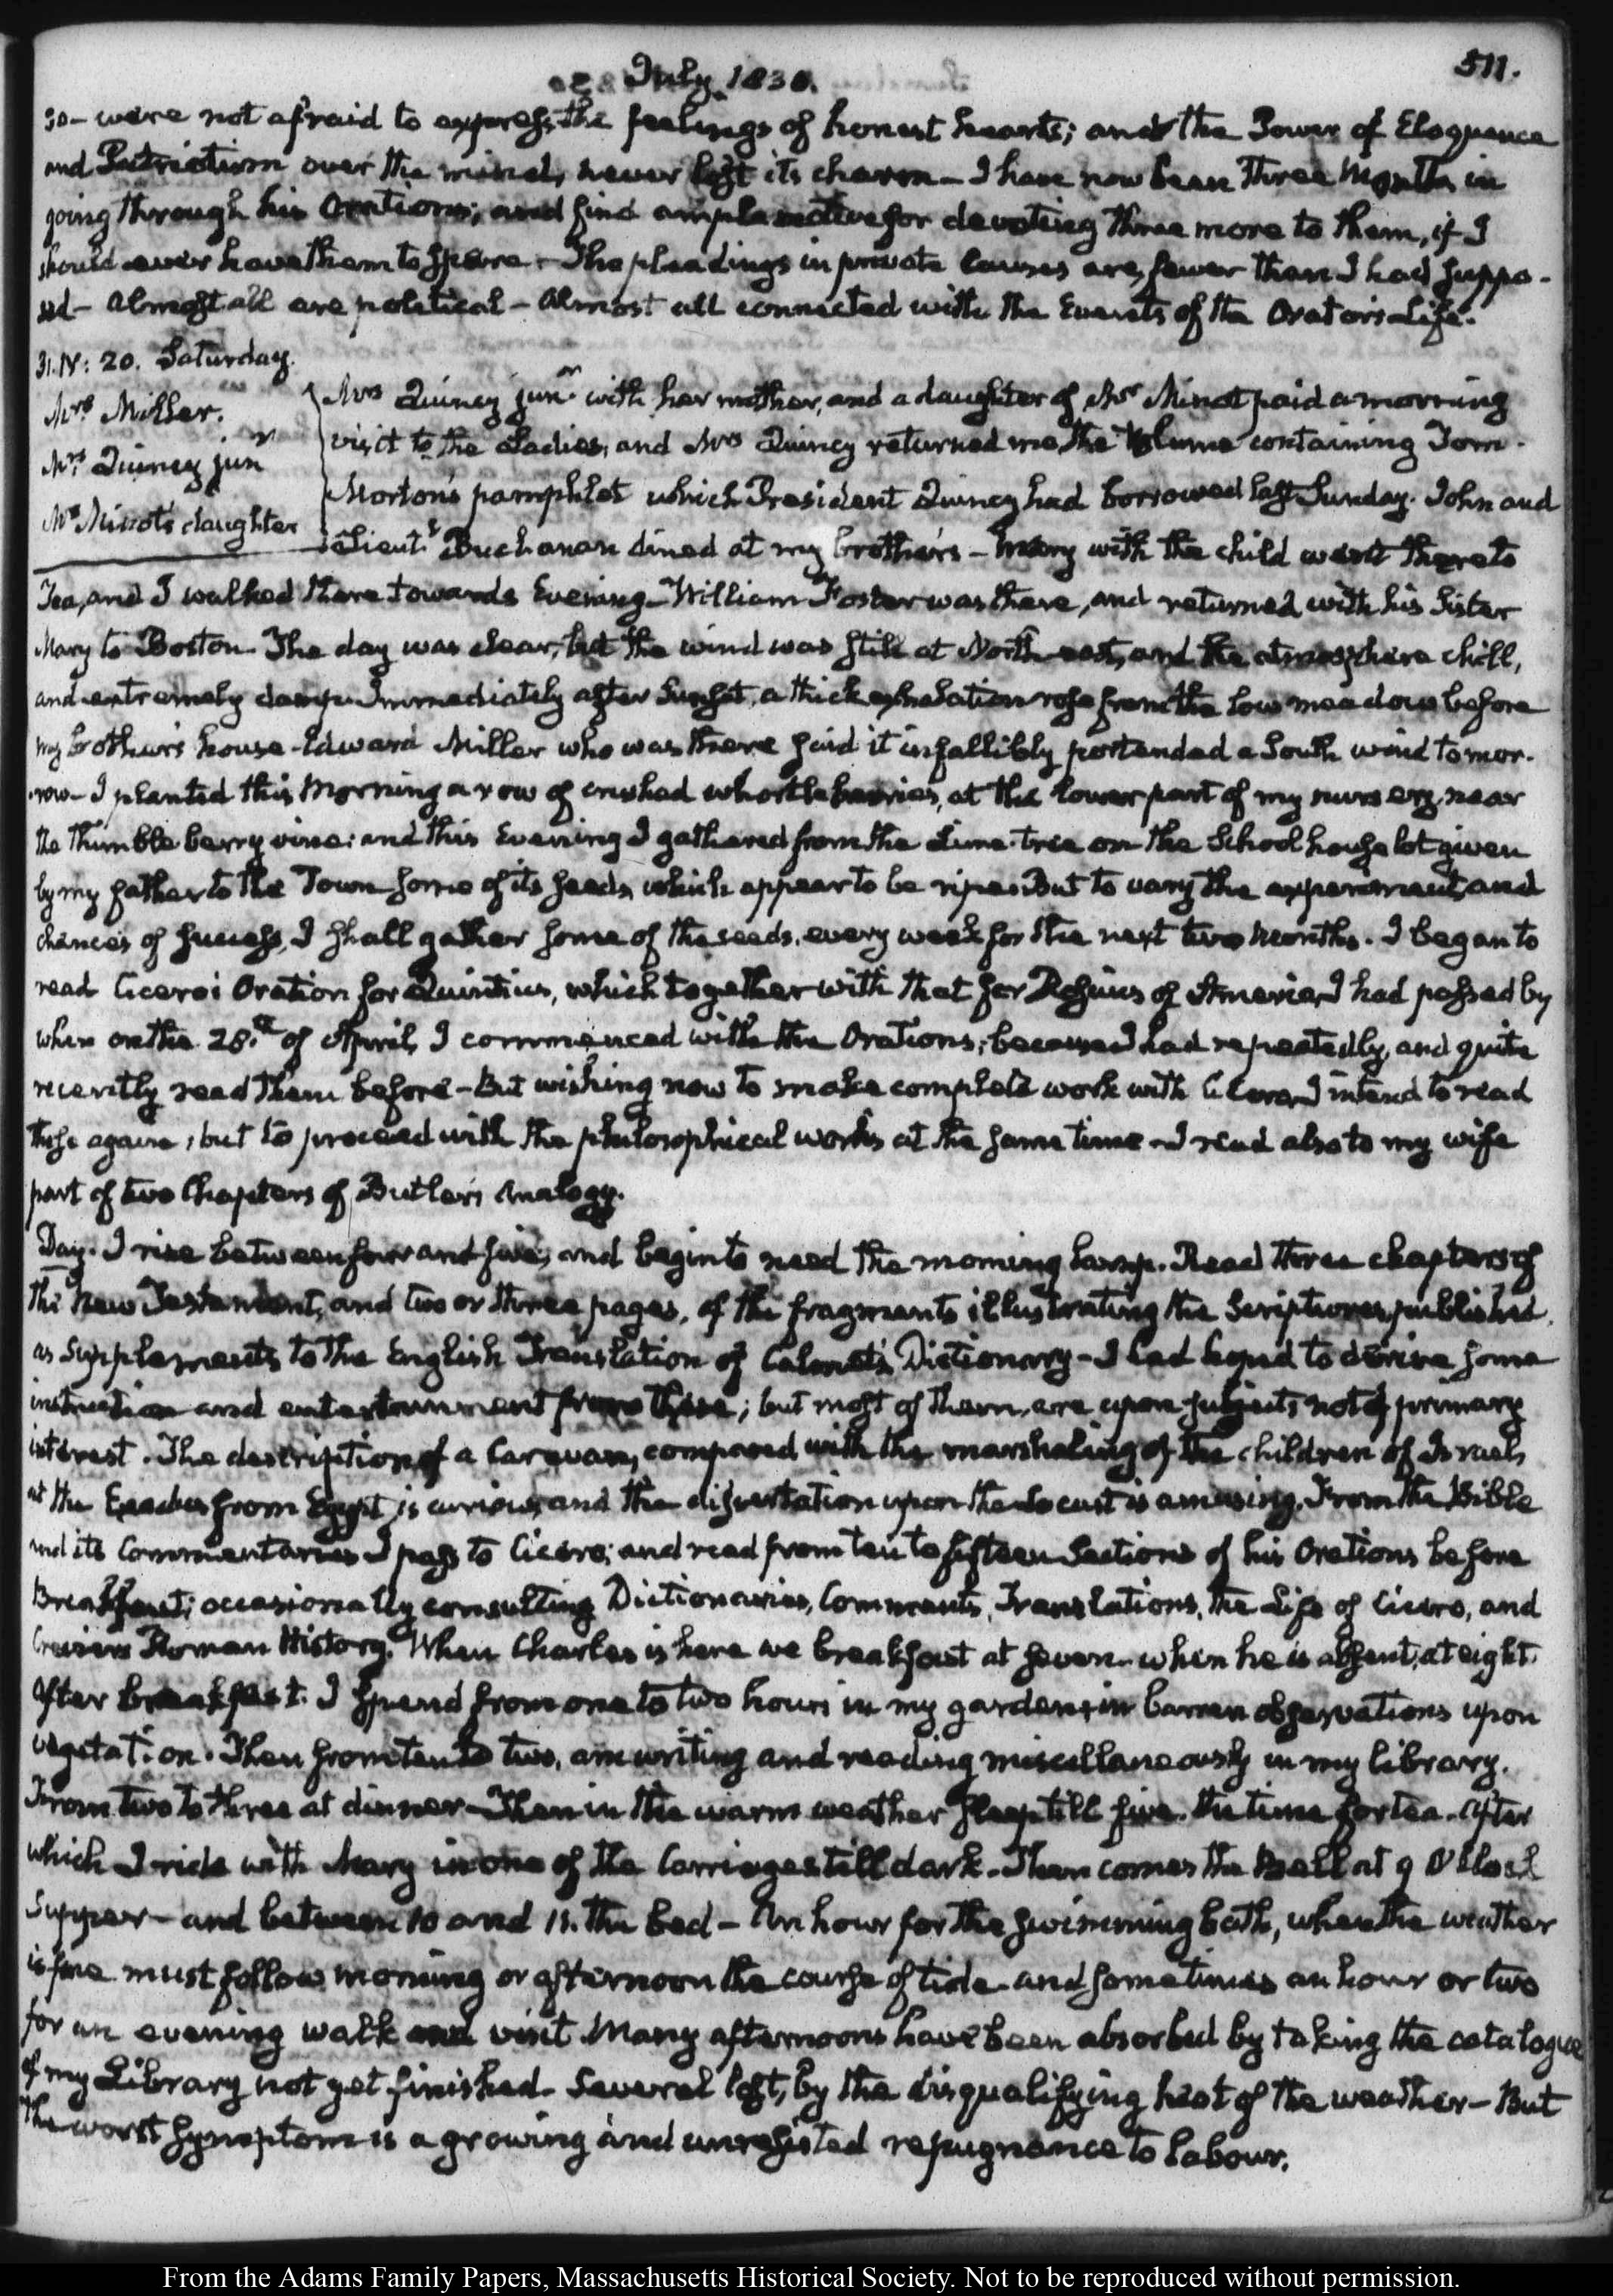 July 1830.
511.
30 — were not afraid to express the feelings of honest hearts; and the Power of Eloquence
and Patriotism over the mind, never lost its charm — I have now been three Months in
going through his Orations; and find ample motive for devoting three more to them, if I
should ever have them to spare — The pleadings in private causes are fewer than I had suppo-
sed — Almost all are political — Almost all connected with the Events of the Orator's Life.
31. IV: 20. Saturday.
Mrs Miller.
Mrs Quincy junr
Mr Minot's daughter
Mrs Quincy junr with her mother, and a daughter of Mr Minot paid a morning
visit to the Ladies, and Mrs Quincy returned me the Volume containing Tom
Morton's pamphlet which President Quincy had borrowed last Sunday. John and
Lieutt Buchanan dined at my brother's — Mary with the child went there to
Tea, and I walked there towards Evening — William Foster was there, and returned with his Sister
Mary to Boston — The day was clear, but the wind was still at North east, and the atmosphere chill,
and extremely damp — Immediately after Sunset, a thick exhalation rose from the low meadow before
my brother's house — Edward Miller who was there said it infallibly portended a South wind tomor-
row — I planted this Morning a row of crushed whortleberries, at the lower part of my nursery, near
the thimble berry vine; and this Evening I gathered from the Lime-tree on the School house lot given
by my father to the Town some of its seeds, which appear to be ripe. But to vary the experiment, and
chances of success, I shall gather some of the seeds, every week for the next two Months. I began to
read Cicero's Oration for Quintius, which together with that for Roscius of Ameria, I had passed by
when on the 28th of April, I commenced with the Orations; because I had repeatedly, and quite
recently read them before — But wishing now to make complete work with Cicero, I intend to read
these again, but to proceed with the philosophical works at the same time — I read also to my wife
part of two Chapters of Butler's Analogy.
Day. I rise between four and five, and begin to need the morning lamp. Read three chapters of
the New Testament, and two or three pages, of the fragments illustrating the Scriptures, published,
as Supplements to the English Translation of Calmet's Dictionary — I had hoped to derive some
instruction and entertainment from these; but most of them, are upon subjects not of primary
interest. The description of a Caravan, compared with the marshaling of the children of Israel,
at the Exodus from Egypt is curious, and the dissertation upon the Locust is amusing. From the Bible
and its Commentaries I pass to Cicero; and read from ten to fifteen Sections of his Orations before
Breakfast; occasionally consulting Dictionaries, Comments, Translations, the Life of Cicero, and
Crevier's Roman History. When Charles is here we breakfast at seven — when he is absent, at eight.
After breakfast. I spend from one to two hours in my garden, in barren observations upon
vegetation. Then from ten to two, am writing and reading miscellaneously in my library.
From two to three at dinner — Then in the warm weather sleep till five. the time for tea. After
which I ride with Mary in one of the Carriages till dark. Then comes the Bell at 9 O'Clock
Supper — and between 10 and 11. the bed — An hour for the swimming bath, when the weather
is fine must follow morning or afternoon the course of tide — and sometimes an hour or two
for an evening walk and visit. Many afternoons have been absorbed by taking the catalogue
of my Library not yet finished — Several lost, by the disqualifying heat of the weather — But
the worst symptom is a growing and unresisted repugnance to labour.
From the Adams Family Papers, Massachusetts Historical Society. Not to be reproduced without permission.